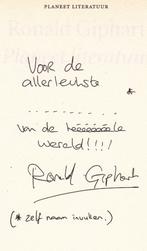 PLANEET LITERATUUR
Ronald Giphart
Planeet literatuur
Voor de
allerleukste
*
..............
van de heeéééééle
wereld!!!!
Ronald Giphart
(* zelf naam invullen.)